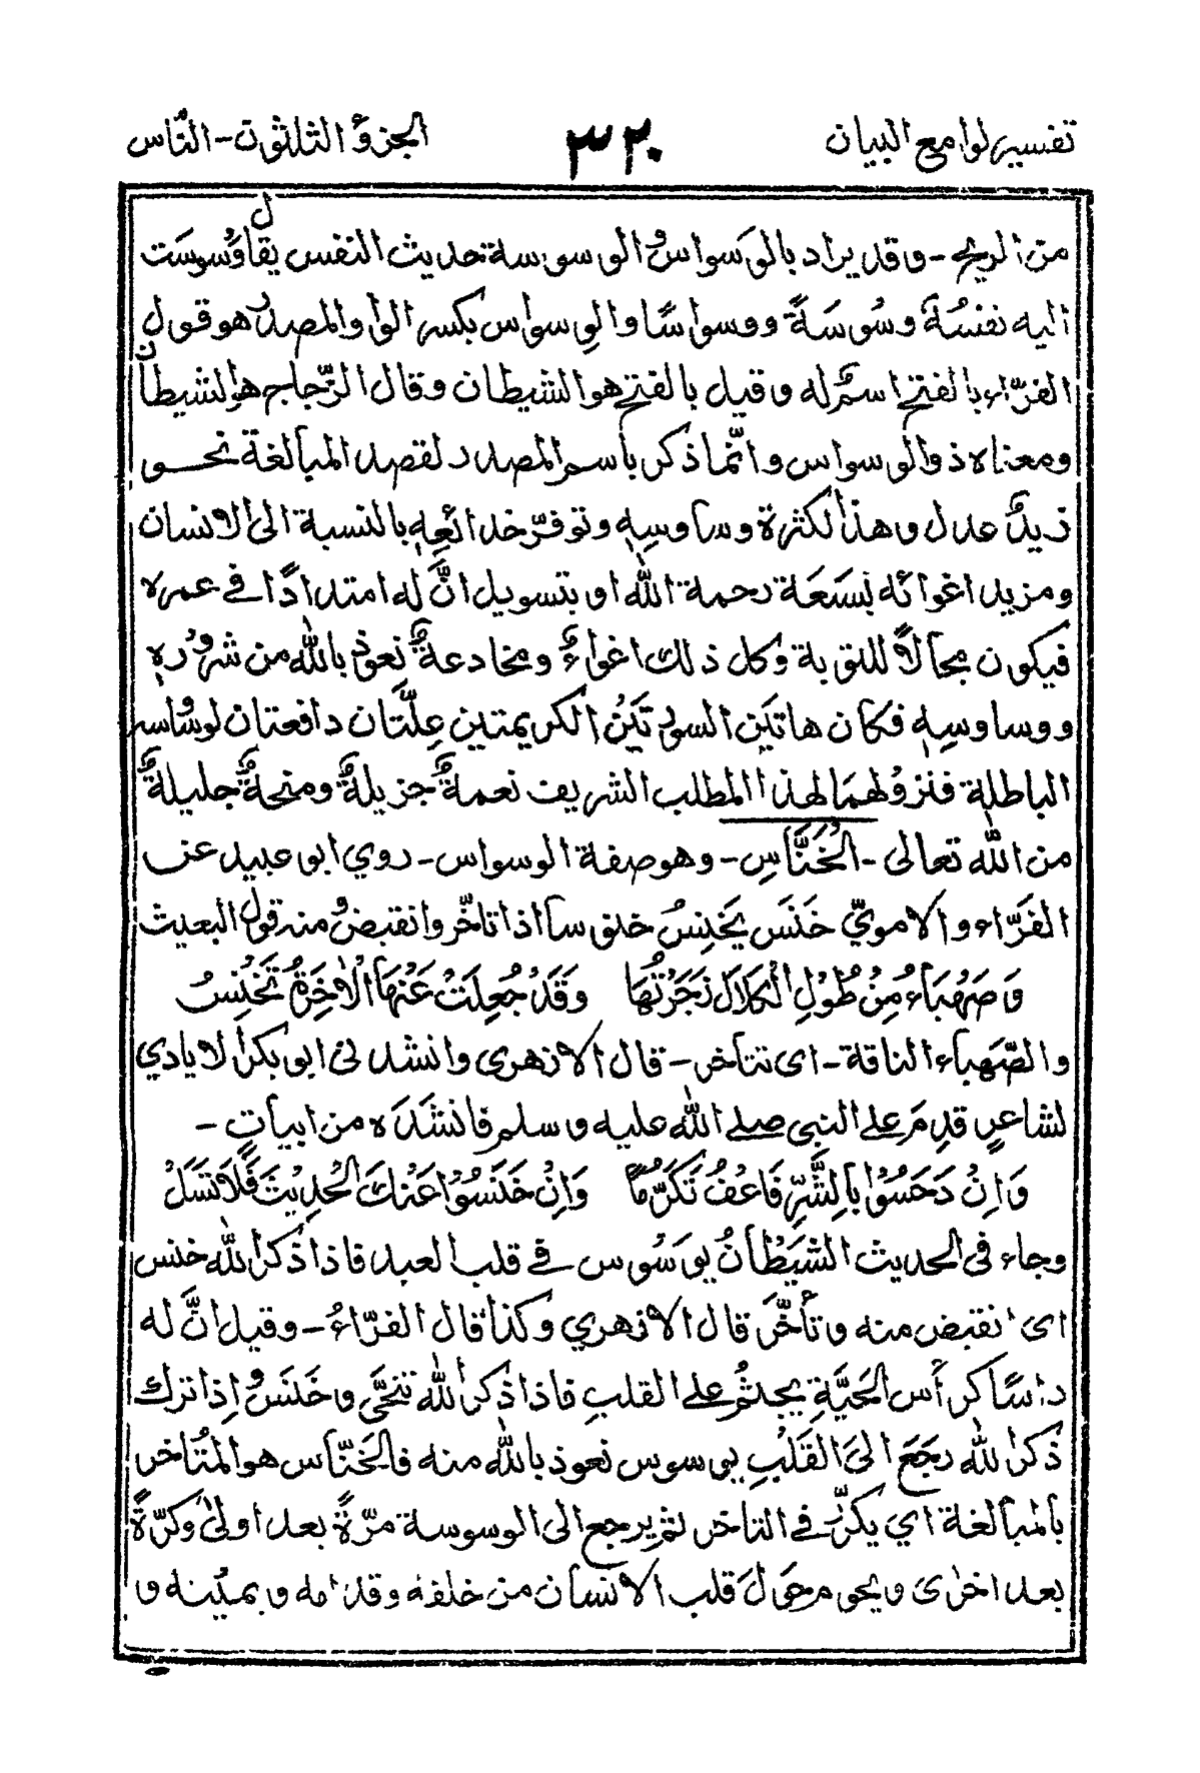 تفسير لوامع البيان ٣٢٠ الجزؤ الثلثون - النّاس
من الريح - وقد يراد بالوَسواس والوسوسة حديث النفس يقال وَسْوسَت
اليه نفسُهٗ وسْوسَةً ووِسواسًا والوِسواس بكسر الواو المصدر هو قول
الفرّاء بالفتح اسمٌ له وقيل بالفتح هو الشيطان وقال الزّجاج هو الشيطان
ومعناه ذو الوسواس وانّما ذكر باسم المصدر لقصد المبالغة نحو
زيدٌ عدل وهذا لكثرة وساوسِهٖ وتوفّر خدائعِهٖ بالنسبة الى الانسان
ومزيد اغوائه بسَعَة رحمة الله او بتسويل انَّ له امتدادًا فى عمره
فيكون مجالًا للتوبة وكل ذلك اغواءٌ ومخادعةٌ نعوذ بالله من شروره
ووساوسِهٖ فكان هاتَين السورتَين الكريمتين عِلّتان دافعتان لوساوسه
الباطلة فنزولهمَا لهذا المطلب الشريف نعمةٌ جزيلةٌ ومنحةٌ جليلةٌ
من الله تعالى - الخَنَّاسِ - وهو صفة الوسواس - روي ابو عبيد عن
الفَرّاء والامويّ خَنَسَ يَخنِسُ خنوسا اذا تاخّر وانقبض ومنه قول البعيث
وَصَهْبَاءُ مِنْ طُوْلِ الْكَلَالِ زَجَرْتُهَا وَقَدْ جُعِلَتْ عَنْهَا الْاٰخِرَةُ تَخْنِسُ
والصّهباء الناقة - اى تتاخر - قال الازهرى وانشد لى ابو بكر الايادي
لشاعرٍ قدِمَ على النبى صلى الله عليه وسلم فانشَدَه من ابياتٍ -
وَاِنْ دَحَسُوْا بِالشَّرِّ فَاعْفُ تَكَرُّمًا وَاِنْ خَنَسُوْا عَنْكَ الْحَدِيْثَ فَلَا تَسَلْ
وجاء فى الحديث الشَيْطَانُ يوَسْوس فى قلب العبد فاذا ذكر الله خنس
اى انقبض منه وتأخّرَ قال الازهري وكذا قال الفرّاءُ - وقيل انَّ له
راسًا كرأس الحيَّةِ يجثمُ على القلبِ فاذا ذكر الله تنحَّى وخَنَسَ وإذا ترك
ذكر الله رجَعَ الىَ القَلْبِ يوسوس نعوذ بالله منه فالخَنّاس هو المتُاخر
بالمبالغة اي يكرّر فى التاخر ثم يرجع الى الوسوسة مرّةً بعد اولىٰ وكرّةً
بعد اخرٰى ويحوم حَولَ قلب الانسان من خلفهٖ وقدامه وبميّنه و